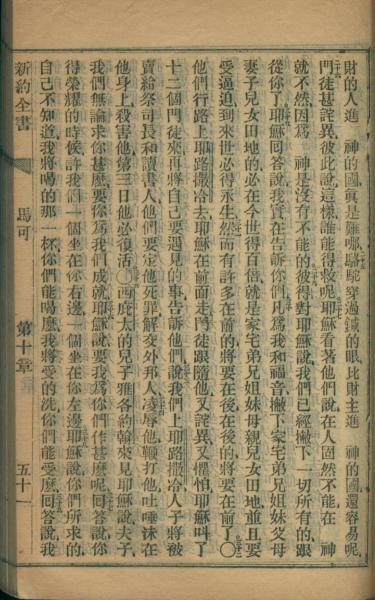 財的人進　神的國眞是難哪駱駝穿過鍼的眼比財主進　神的國還容易呢
門徒甚詫異彼此說這樣誰能得救呢耶穌看著他們說在人固然不能在　神
就不然因爲　神是沒有不能的彼得對耶穌說我們已經撇下一切所有的跟
從你了耶穌回答說我實在告訴你們凡爲我和福音撇下家宅弟兄姐妹父母
妻子兒女田地的必在今世得百倍就是家宅弟兄姐妹母親兒女田地並且要
受逼迫到來世必得永生然而有許多在前的將要在後在後的將要在前了〇
他們行路上耶路撒冷去耶穌在前面走門徒跟隨他又詫異又懼怕耶穌叫了
十二個門徒來再將自己要遇見的事告訴他們說我們上耶路撒冷人子將被
賣給祭司長和讀書人他們要定他死罪解交外邦人凌辱他鞭打他吐唾沫在
他身上殺害他第三日他必復活〇西庇太的兒子雅各約翰來見耶穌說夫子
我們無論求你甚麼要你爲我們成就耶穌說要我爲你們作甚麼呢回答說你
得榮耀的時候許我們一個坐在你右邊一個坐在你左邊耶穌說你們所求的
自己不知道我將喝的那一杯你們能喝麼我將受的洗你們能受麼回答說我
新約全書　馬可　第十章　五十一